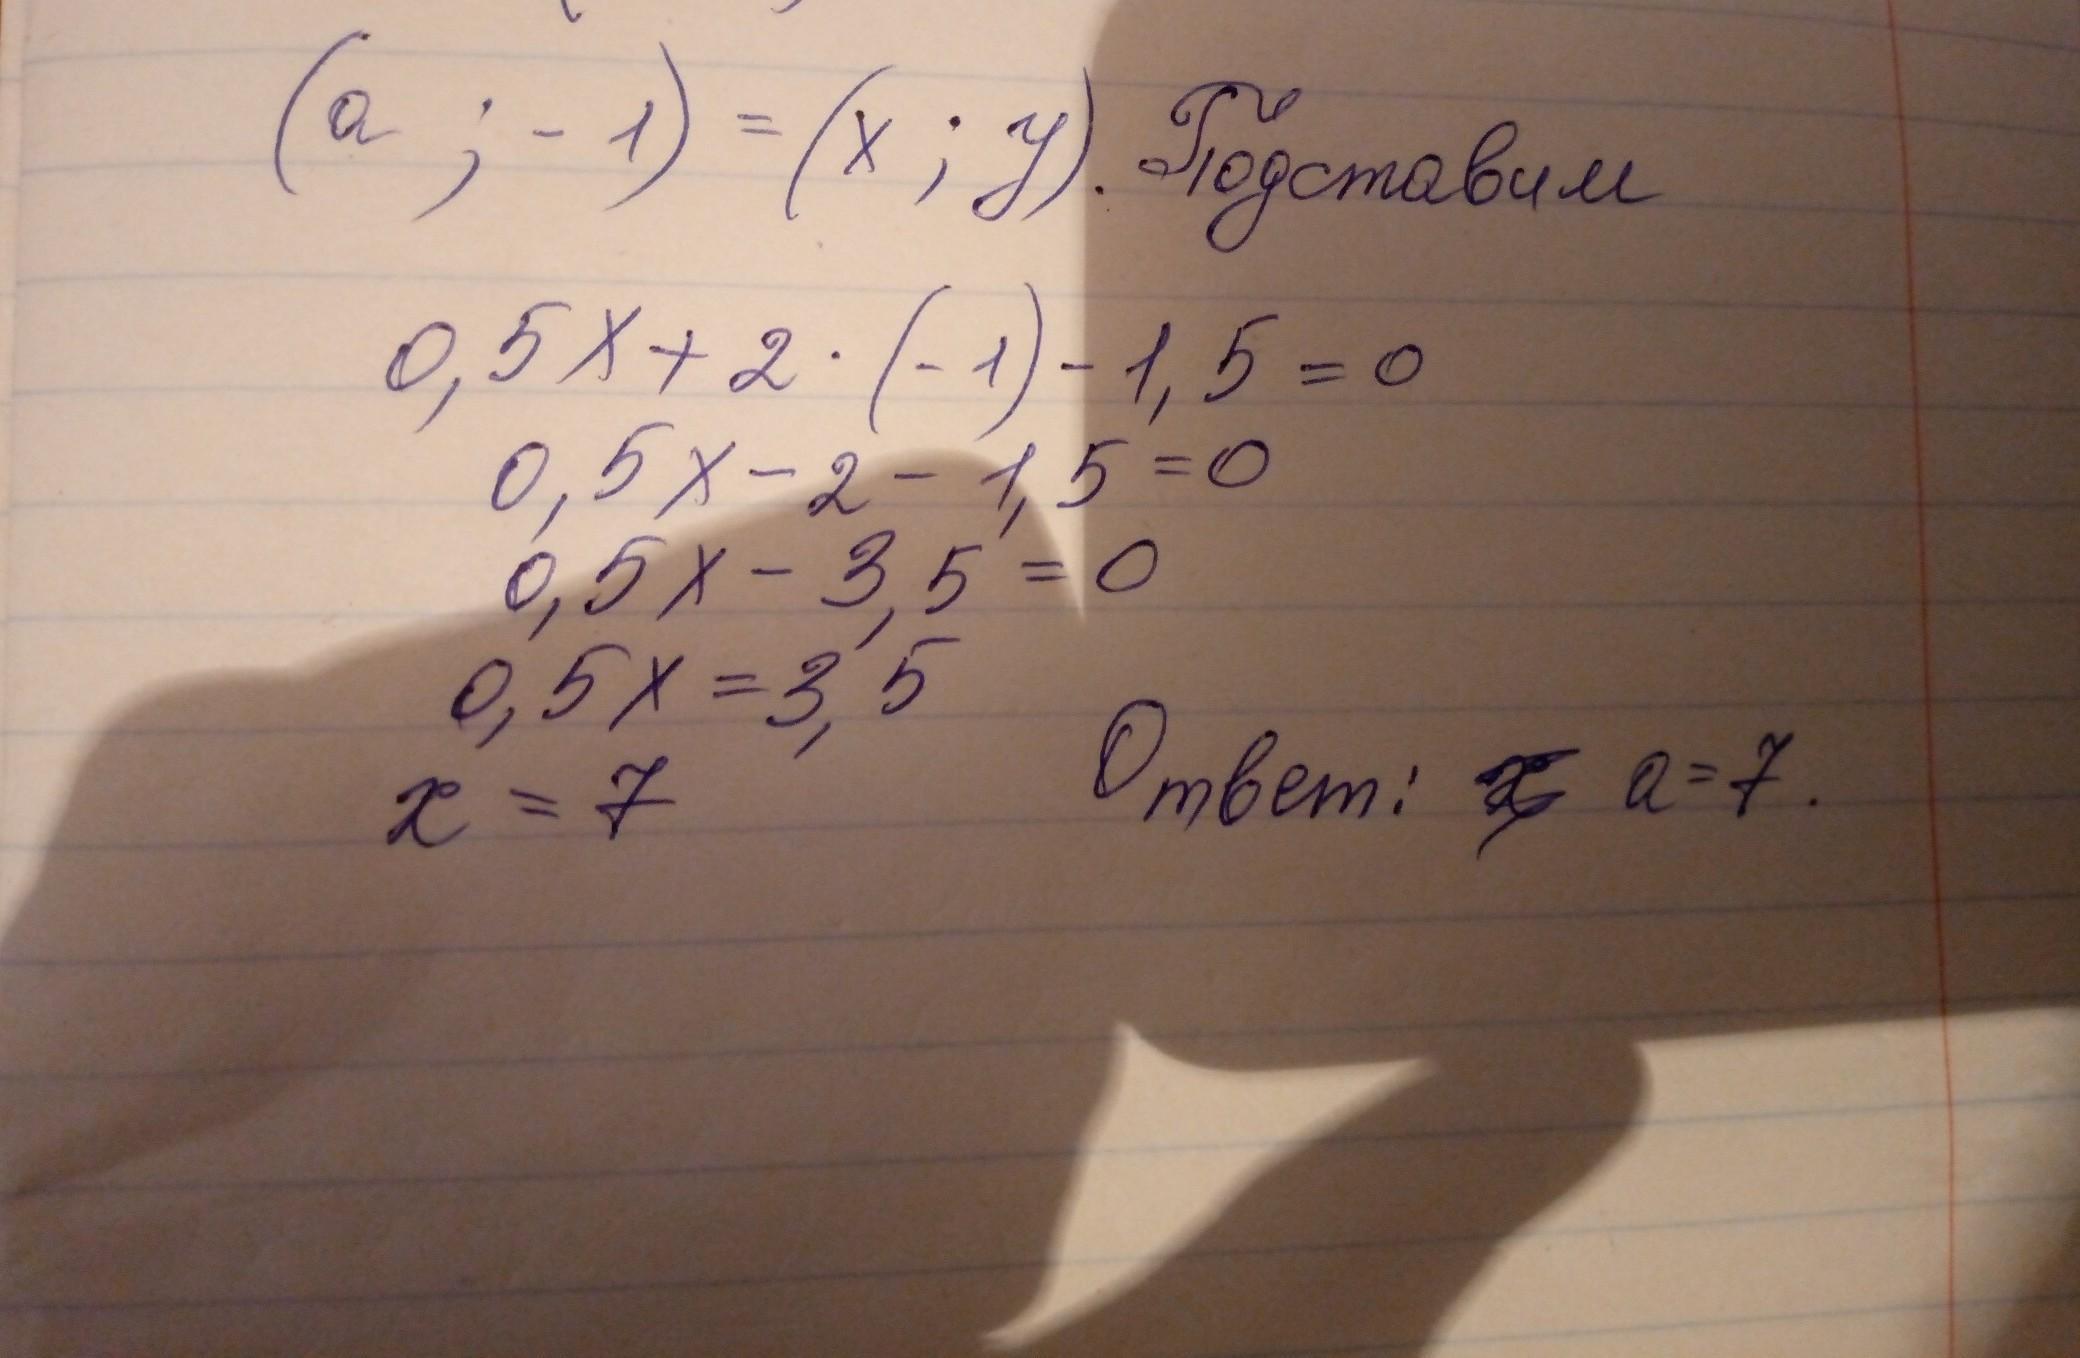 (a ; -1) = (x ; y). Подставим
0,5x + 2 · (-1) - 1,5 = 0
0,5x - 2 - 1,5 = 0
0,5x - 3,5 = 0
0,5x = 3,5
x = 7
Ответ: a = 7.